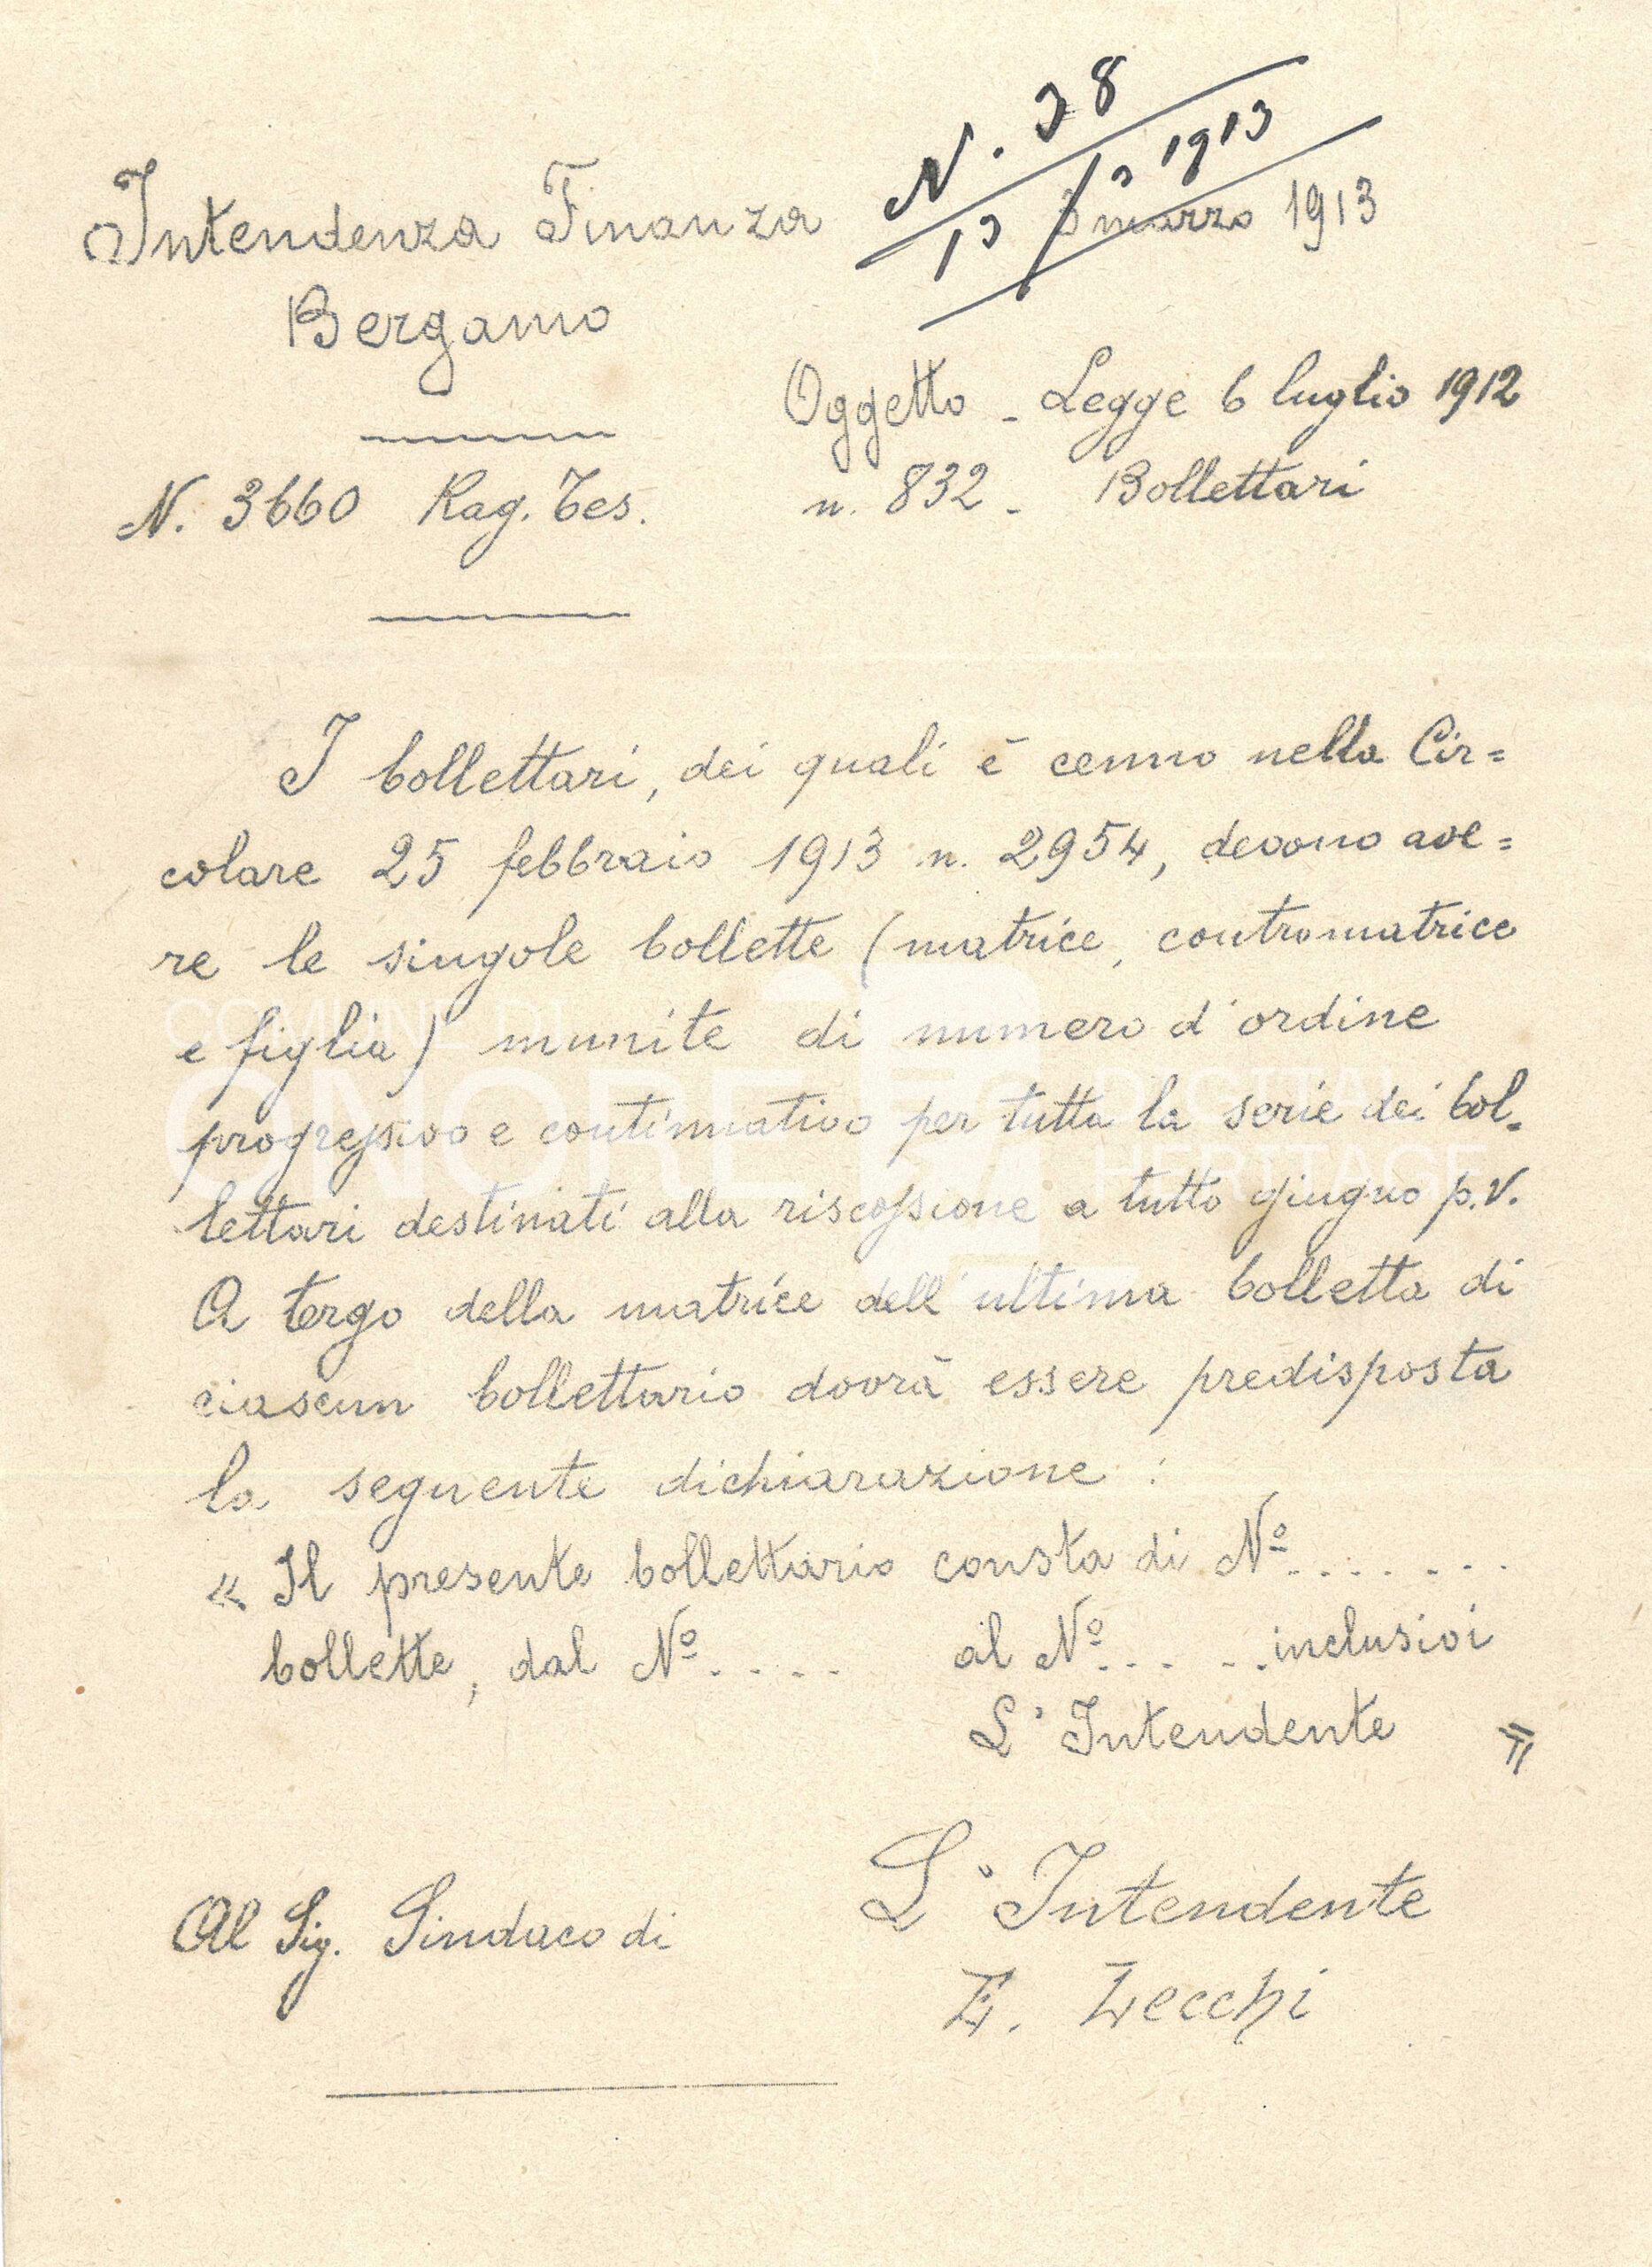 N. 38
13/3 1913
Intendenza Finanza
Bergamo
marzo 1913
Oggetto - Legge 6 luglio 1912
n. 832 - Bollettari
N. 3660 Rag. Tes.
I bollettari, dei quali è cenno nella Cir=
colare 25 febbraio 1913 n. 2954, devono ave=
re le singole bollette (matrice, contromatrice
e figlia) munite di numero d'ordine
progressivo e continuativo per tutta la serie dei bol=
lettari destinati alla riscossione a tutto giugno p.v.
A tergo della matrice dell'ultima bolletta di
ciascun bollettario dovrà essere predisposta
la seguente dichiarazione :
« Il presente bollettario consta di Nº.......
bollette, dal Nº.... al Nº.....inclusivi
L'Intendente »
L'Intendente
E. Zecchi
Al Sig. Sindaco di
COMUNE DI
ONORE
DIGITAL
HERITAGE